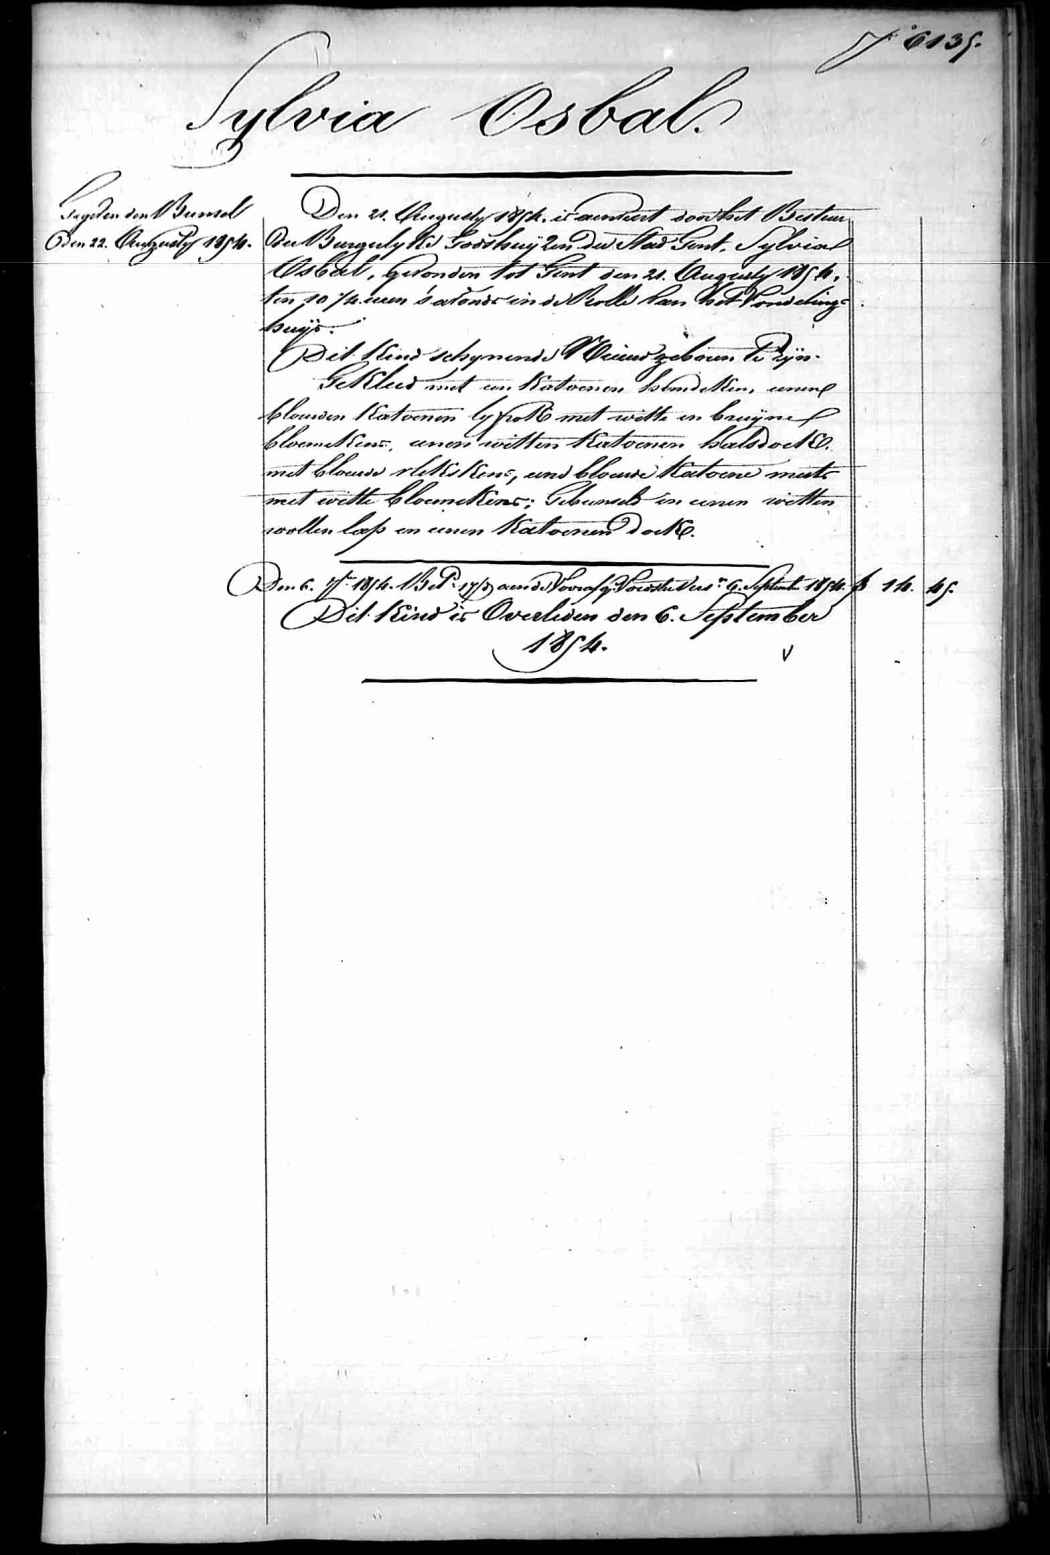 6135.
Sylvia Osbal.
Gegeven den Bunsel
Den 22. Augusty 1854.
Den 21. Augusty 1854. is aenveert door het Bestuur
der Burgerlyke Godshuyzen der Stad Gent, Sylvia
Osbal, gevonden tot Gent den 21. Augusty 1854.
ten 10 1/4 uren 's avonds in de Rolle van het Vondeling-
huys.
Dit Kind schynende Nieuw geboren te zyn.
Gekleed met een Katoenen hemdeken, eenen
blouwen Katoenen lyfrok met witte en bruyne
bloemekens, eenen witten Katoenen halsdoek
met blouwe vlekskens, eene blouwe Katoene muts
met witte bloemekens; Gebunseld in eenen witten
wollen lap en eenen Katoenen doek.
Den 6. 7br 1854. Bet. aende 6. September 1854. fr 14. 45.
Dit Kind is Overleden den 6. September
1854.